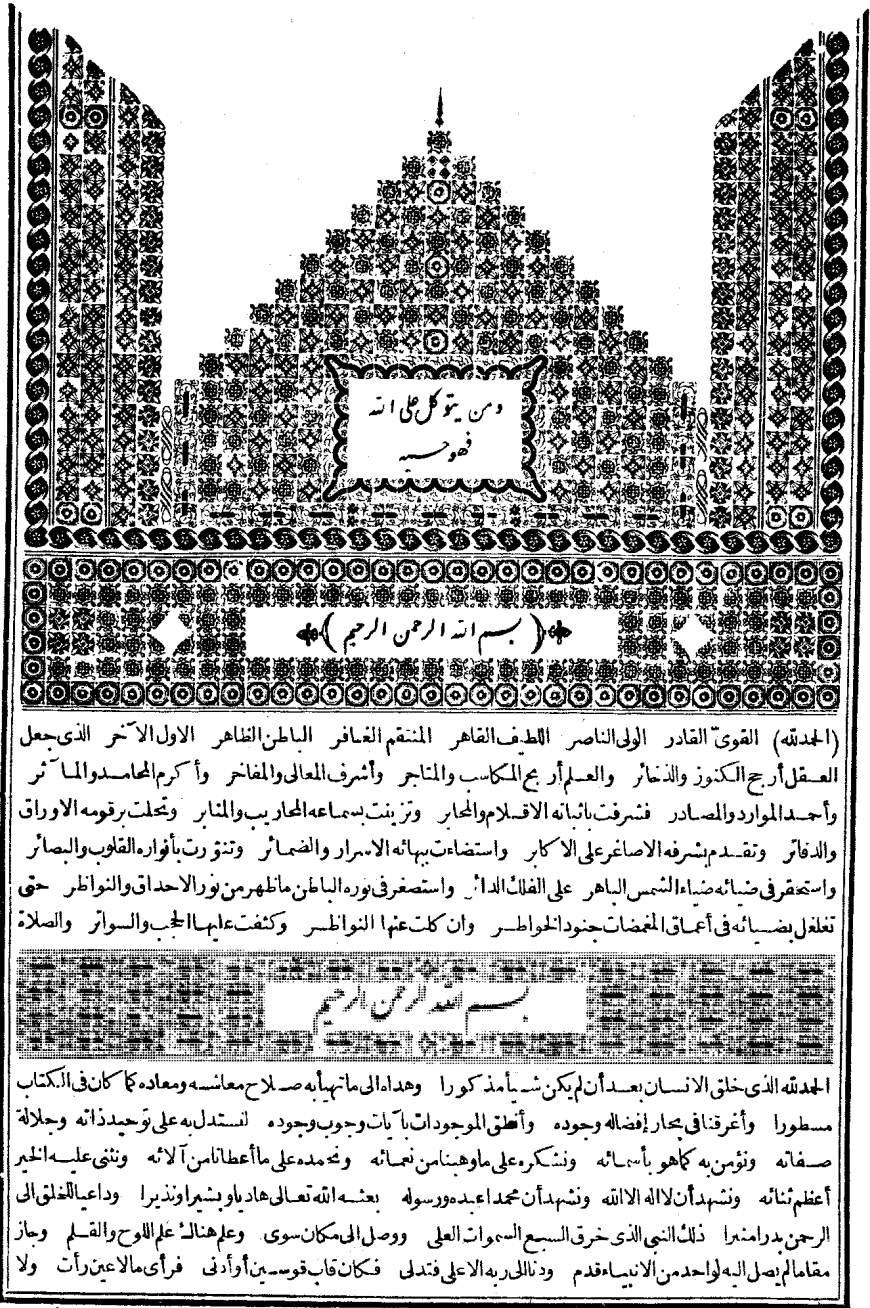 ومن يتوكل على الله
فهو حسبه
بسم الله الرحمن الرحيم
(الحمد لله) القوىّ القادر الولى الناصر اللطيف القاهر المنتقم الغافر الباطن الظاهر الاول الآخر الذى جعل
العقل أرجح الكنوز والذخائر والعلم أربح المكاسب والمتاجر وأشرف المعالى والمفاخر وأكرم المحامد والمآثر
وأحمد الموارد والمصادر فشرفت باثباته الاقلام والمحابر وتزينت بسماعه المحاريب والمنابر وتحلت برقومه الاوراق
والدفاتر وتقدم بشرفه الاصاغر على الاكابر واستضاءت ببهائه الاسرار والضمائر وتنوّرت بأنواره القلوب والبصائر
واستحقر فى ضيائه ضياء الشمس الباهر على الفلك الدائر واستصغر فى نوره الباطن ما ظهر من نور الاحداق والنواظر حتى
تغلغل بضيائه فى أعماق المغمضات جنود الخواطر وان كلت عنها النواظر وكثفت عليها الحجب والسواتر والصلاة
بسم الله الرحمن الرحيم
الحمد لله الذى خلق الانسان بعد أن لم يكن شيأ مذكورا وهداه الى ما تهيأ به صلاح معاشه ومعاده كما كان فى الكتاب
مسطورا وأغرقنا فى بحار إفضاله وجوده وأنطق الموجودات بآيات وجوب وجوده لنستدل به على توحيد ذاته وجلالة
صفاته ونؤمن به كما هو بأسمائه ونشكره على ما وهبنا من نعمائه ونحمده على ما أعطانا من آلائه ونثنى عليه الخير
أعظم ثنائه ونشهد أن لا اله الا الله ونشهد أن محمدا عبده ورسوله بعثه الله تعالى هاديا وبشيرا ونذيرا وداعيا للخلق الى
الرحمن بدرا منيرا ذلك النبى الذى خرق السبع السموات العلى ووصل الى مكان سوى وعلم هنالك علم اللوح والقلم وجاز
مقاما لم يصل اليه لواحد من الانبياء قدم ودنا الى ربه الاعلى فتدلى فكان قاب قوسين أو أدنى فرأى ما لا عين رأت ولا